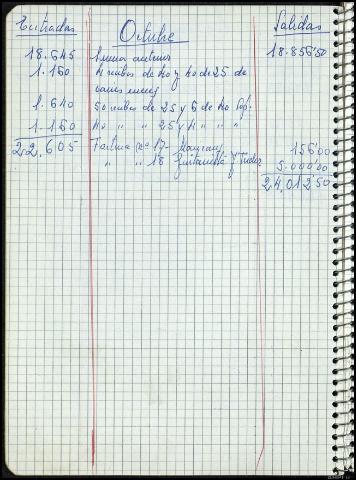 Entradas Octubre Salidas
18.645 Suma anterior 18.856'50
1.160 4 cubos de 40 y 40 de 25 de
1.640 50 cubos de 25 y 6 de 40
1.160 40 " " 25 y 4 " " "
22.605 Factura nº 17- 156'00
" " 18 y Tudor 5.000'00
24.012'50